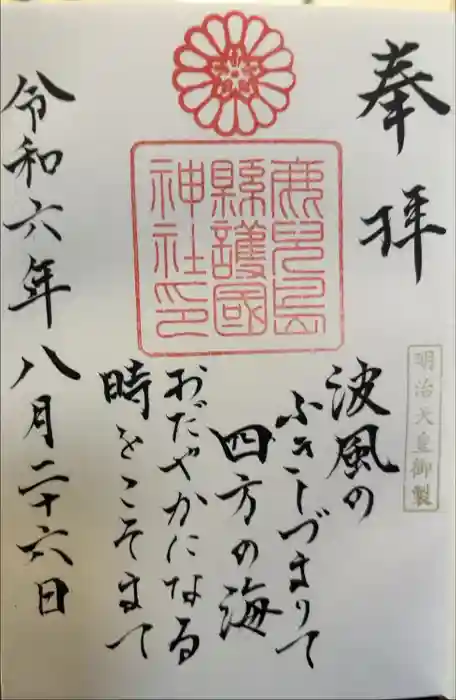 奉拝
明治天皇御製
鹿児島
縣護國
神社印
波風の
ふきしづまりて
四方の海
おだやかになる
時をこそまて
令和六年八月二十六日